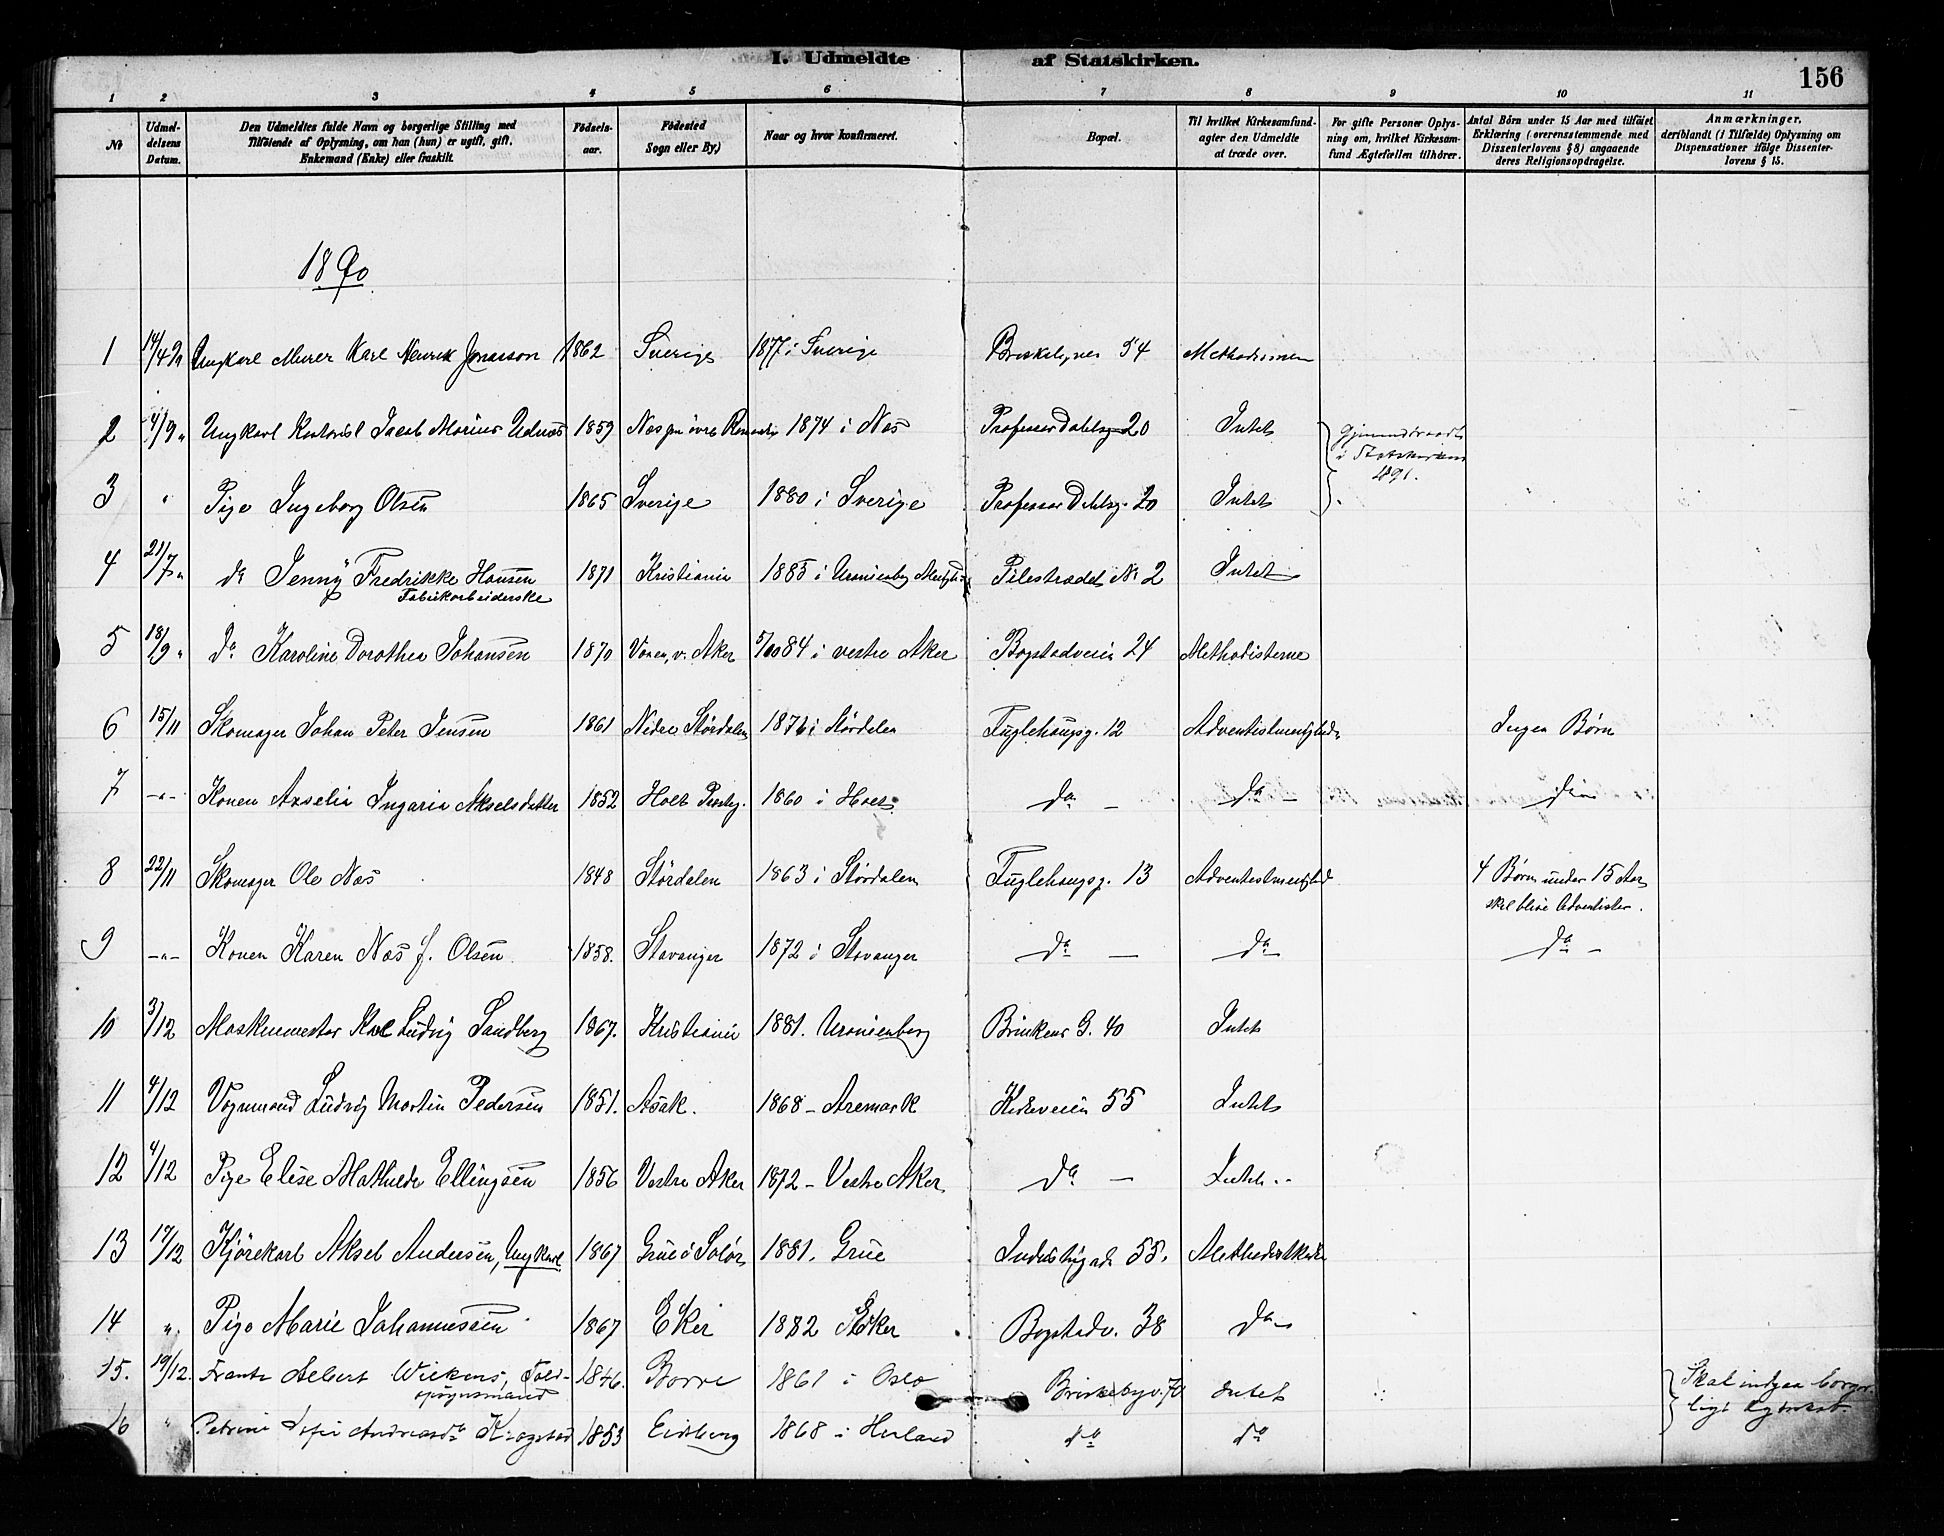 I. Udmeldte af Statskirken.
156
1 2 3 4 5 6 7 8 9 10 11
No
Udmel-
delsens
Datum.
Den Udmeldtes fulde Navn og borgerlige Stilling med
Tilföiende af Oplysning, om han (hun) er ugift, gift,
Enkemand (Enke) eller fraskilt.
Födsels-
aar.
Födested
Sogn eller By,)
Naar og hvor konfirmeret.
Bopæl.
Til hvilket Kirkesamfund-
agter den Udmeldte
at træde over.
For gifte Personer Oplys-
ning om, hvilket Kirkesam-
fund Ægtefællen tilhörer.
Antal Börn under 15 Aar med tilföiet
Erklæring (overensstemmende med
Dissenterlovens § 8) angaaende
deres Religionsopdragelse.
Anmærkninger,
deriblandt (i Tilfælde) Oplysning om
Dispensationer ifölge Dissenter-
lovens § 15.
1890
1 14/4 90 Ungkarl Murer Karl Henrik Jonasson 1862 Sverige 1877 i Sverige 54
2 4/9 " Ungkarl Kontorist Jacob Marius Udnæs 1859 Næs 1874 i Næs Professor Dahlsg 20 Intet
i Statskirken
1891.
3 " Pige Ingeborg Olsen 1865 Sverige 1880 i Sverige Professor Dahlsg. 20 Intet
4 21/7 " do Jenny Fredrikke Hansen 1871 Kristiania 1885 i Uranienborg Pilestrædet No 2 Intet
Fabrikarbeiderske
5 18/9 " do Karoline Dorothea Johansen 1870 v. Aker 5/10 84 i vestre Aker Bogstadveien 24 Methodisterne
6 15/11 Skomager Johan Peter Jensen 1861 Nedre Stördalen 1876 i Stördalen Fuglehaugsg. 12 Adventistmenigheden Ingen Börn
7 -"- Konen Axselia Ingaria Akselsdatter 1852 Holt 1860 i Holt do - do - do
8 22/11 Skomager Ole Næs 1848 Stördalen 1863 i Stördalen Fuglehaugsg. 13 Adventistmenighed 4 Börn under 15 Aar
skal blive Adventister.
9 -"- Konen Karen Næs f. Olsen 1858. Stavanger 1872 i Stavanger do - do do -
10 3/12 Maskinmester Karl Ludvig Sandberg 1867. Kristiania 1881. Uranienborg Brinkens G. 40 Intet
11 4/12 Vognmand Ludvig Martin Pedersen 1851. Asak. 1868 - Aremark Kirkeveien 55 Intet
12 4/12 Pige Elise Mathilde Ellingsen 1856 Vestre Aker 1872 - Vestre Aker do - Intet
13 17/12 Kjörekarl Aksel Andersen, Ungkarl 1867 Grue i Solör 1881. Grue Industrigade 55. Methodistkirken
14 " Pige Marie Johannessen 1867 Eker 1882 Eker Bogstadv. 38 do
15. 19/12. Frantz Albert Wickens, Told- 1846. Borre 1861 i Oslo Briskebyv. 70 Intet
opsynsmand
Skal indgaa borger-
ligt Ægteskab.
16 " Petrine Sofie Andreasdr Krogstad 1853 Eidsberg 1868 i Herland do do